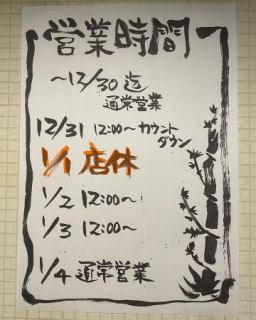 営業時間
~12/30迄
通常営業
12/31 12:00~カウント
ダウン
1/1 店休
1/2 12:00~
1/3 12:00~
1/4 通常営業